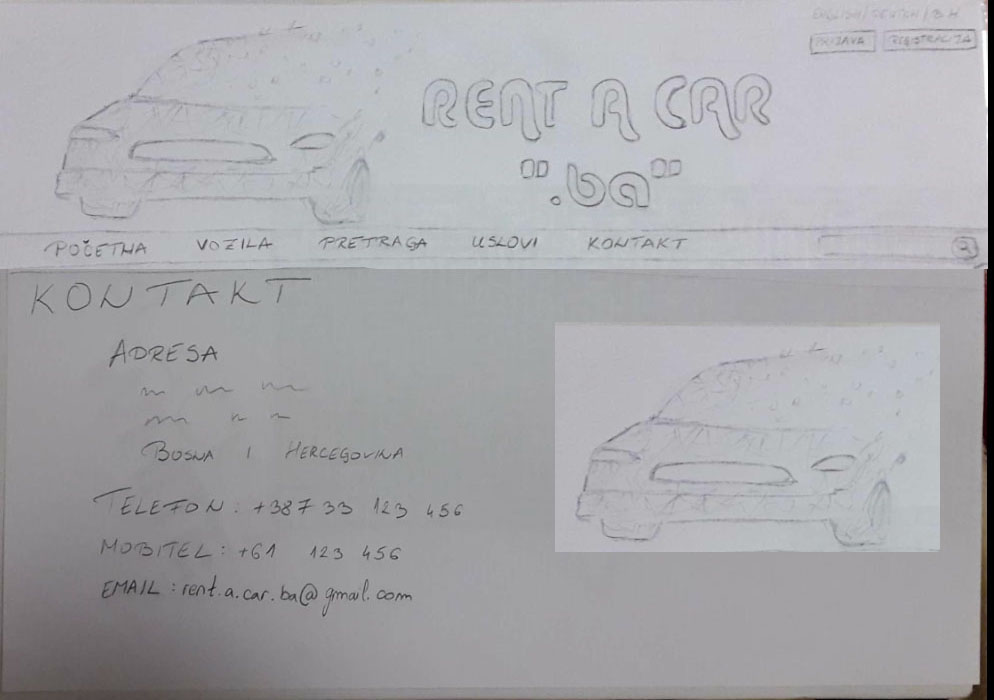 ENGLISH / DEUTSCH / BH
PRIJAVA REGISTRACIJA
RENT A CAR
".ba"
POČETNA VOZILA PRETRAGA USLOVI KONTAKT
KONTAKT
ADRESA
BOSNA I HERCEGOVINA
TELEFON : +387 33 123 456
MOBITEL : +61 123 456
EMAIL : rent.a.car.ba@gmail.com